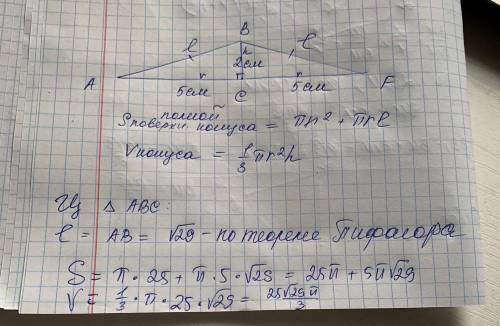 B
l l
h
2см
A r r F
5см C 5см
полной
Sповерхн. конуса = πr² + πrl
Vконуса = 1/3 πr²h
Из △ ABC:
l = AB = √29 - по теореме Пифагора
S = π · 25 + π · 5 · √29 = 25π + 5π√29
V = 1/3 · π · 25 · √29 = 25√29π/3